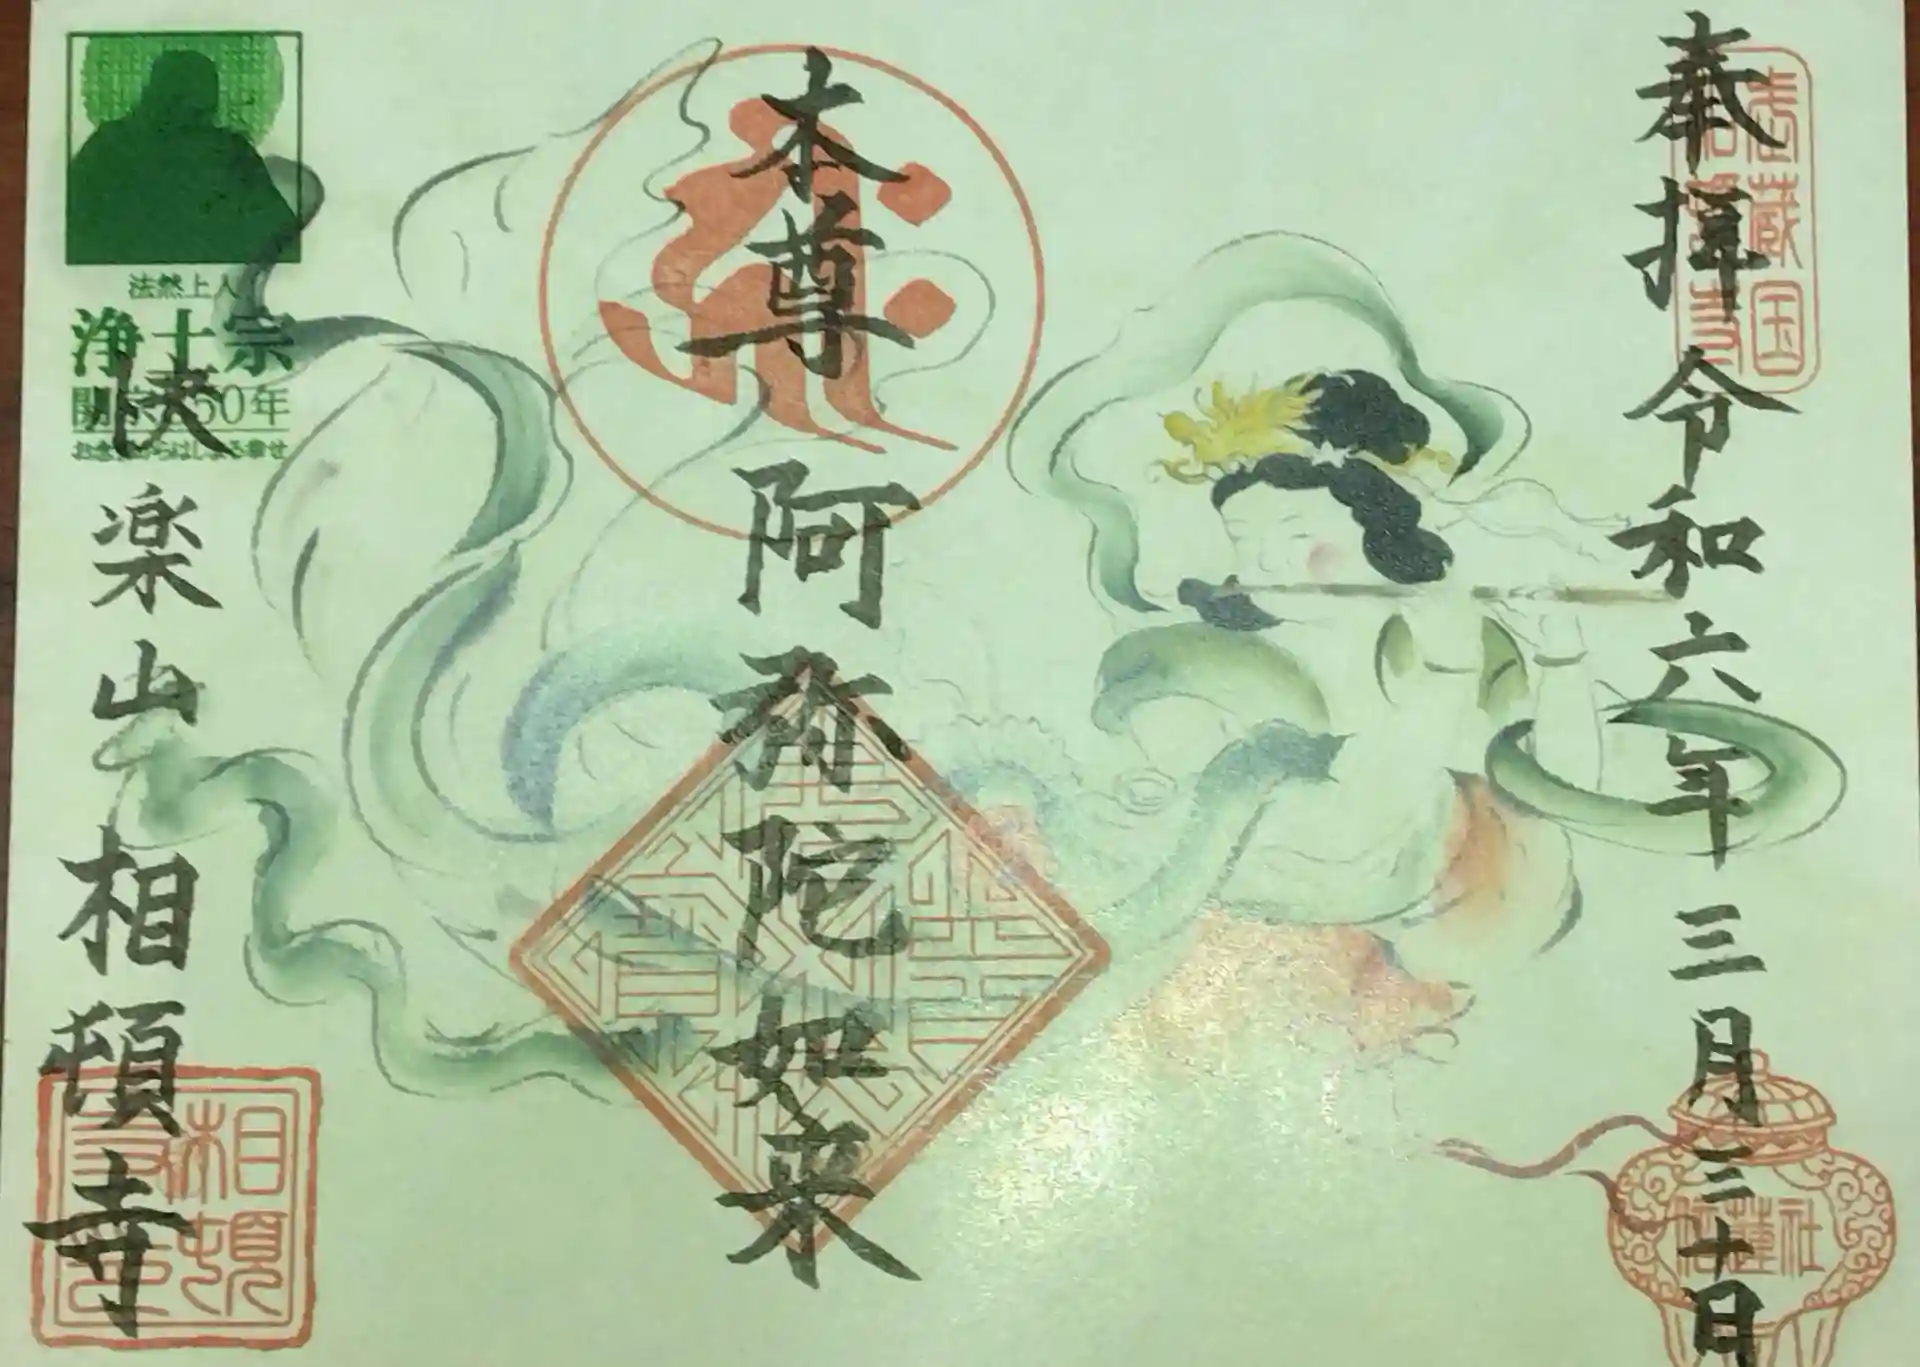 奉拝 令和六年三月三十日
本尊 阿弥陀如来
法然上人
浄土宗
開宗850年
お念仏からはじまる幸せ
快楽山 相頓寺
相頓